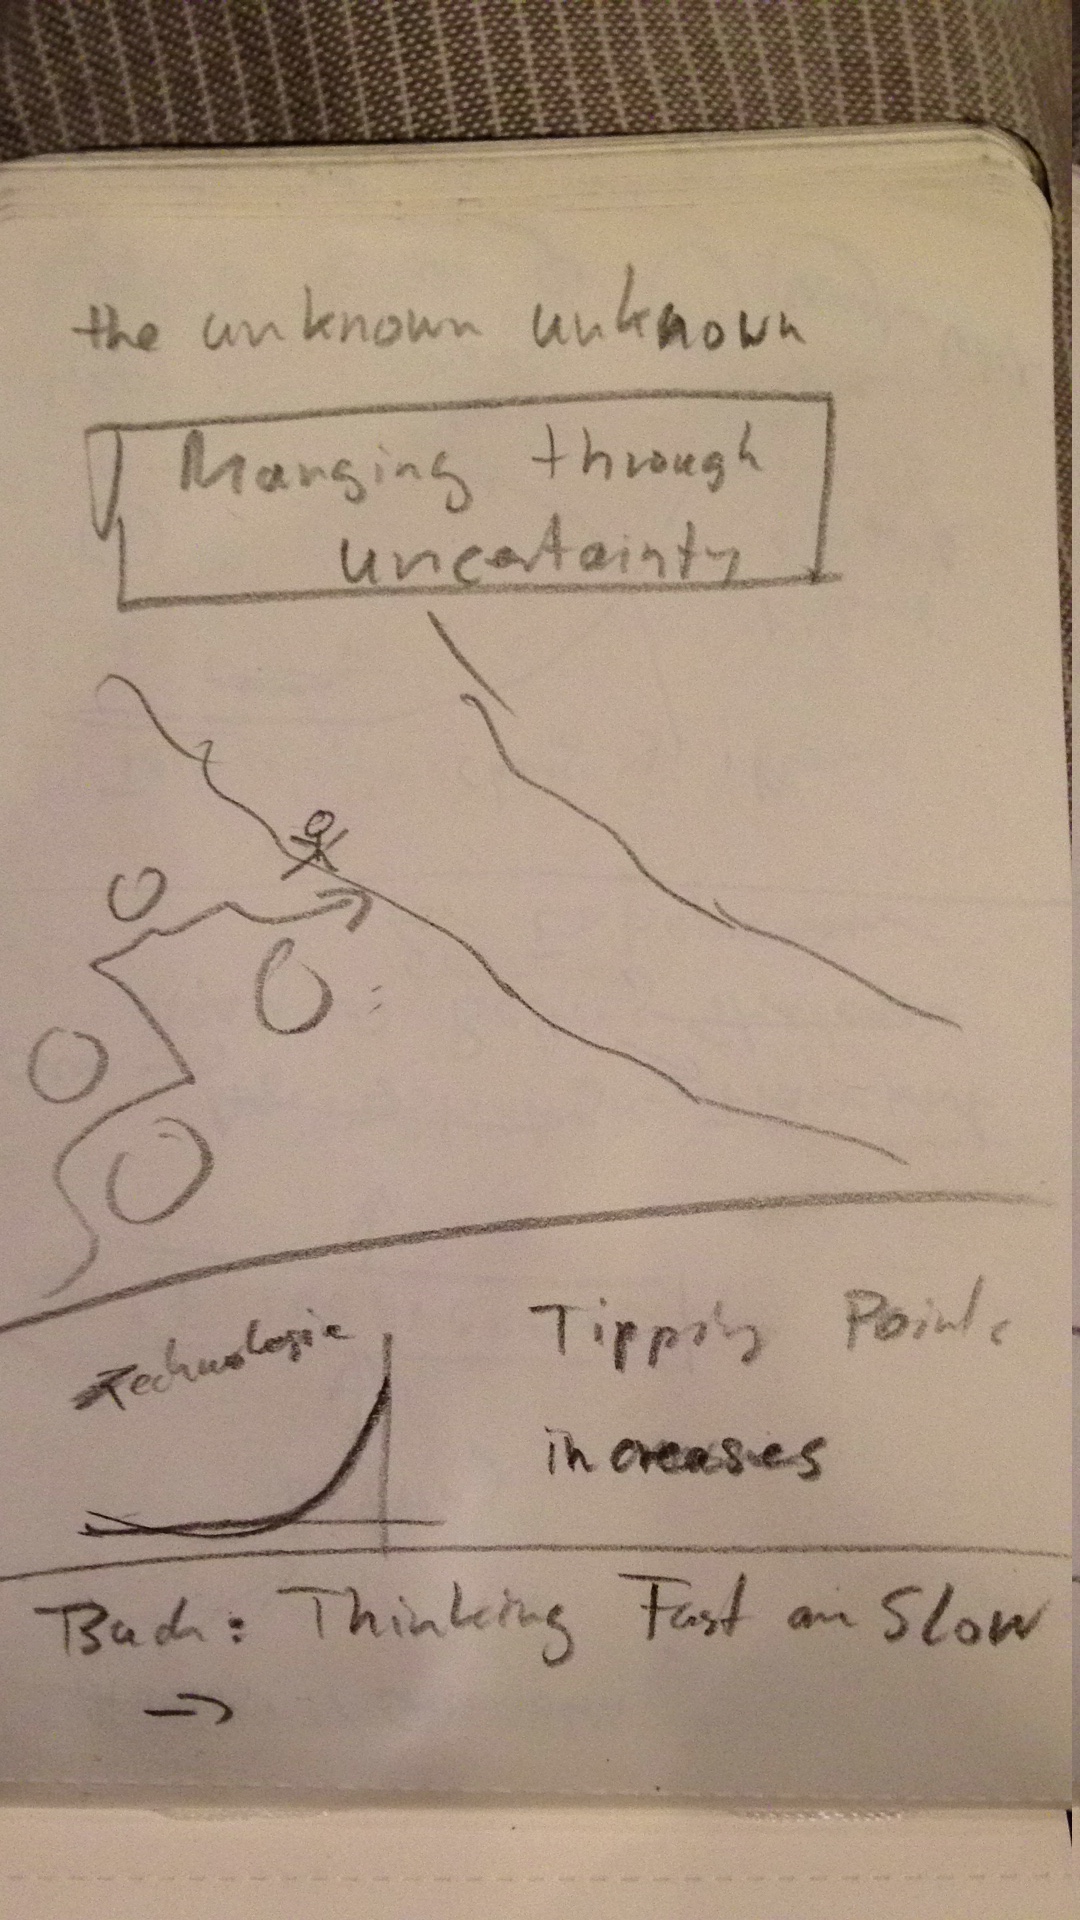 the unknown unknown
Manging through
uncertainty
Technologie
Tipping Points
increases
Buch: Thinking Fast an Slow